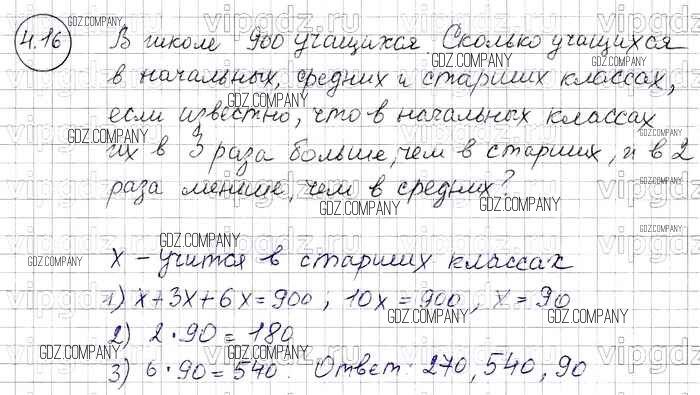 4.16 В школе 900 учащихся. Сколько учащихся
в начальных, средних и старших классах,
если известно, что в начальных классах
их в 3 раза больше, чем в старших, и в 2
раза меньше, чем в средних?
X - учится в старших классах
1) x+3x+6x=900, 10x=900, x=90
2) 2·90=180
3) 6·90=540. Ответ: 270, 540, 90